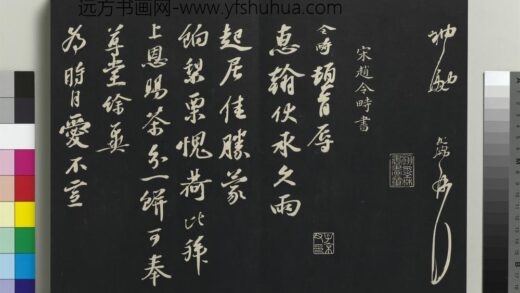 远方书画网-www.yfshuhua.com
宋趙令畤書
令畤頓首辱
惠翰伏承久雨
起居佳勝蒙
餉梨栗愧荷比拜
上恩賜茶分一餅可奉
尊堂徐英
為時自愛不宣